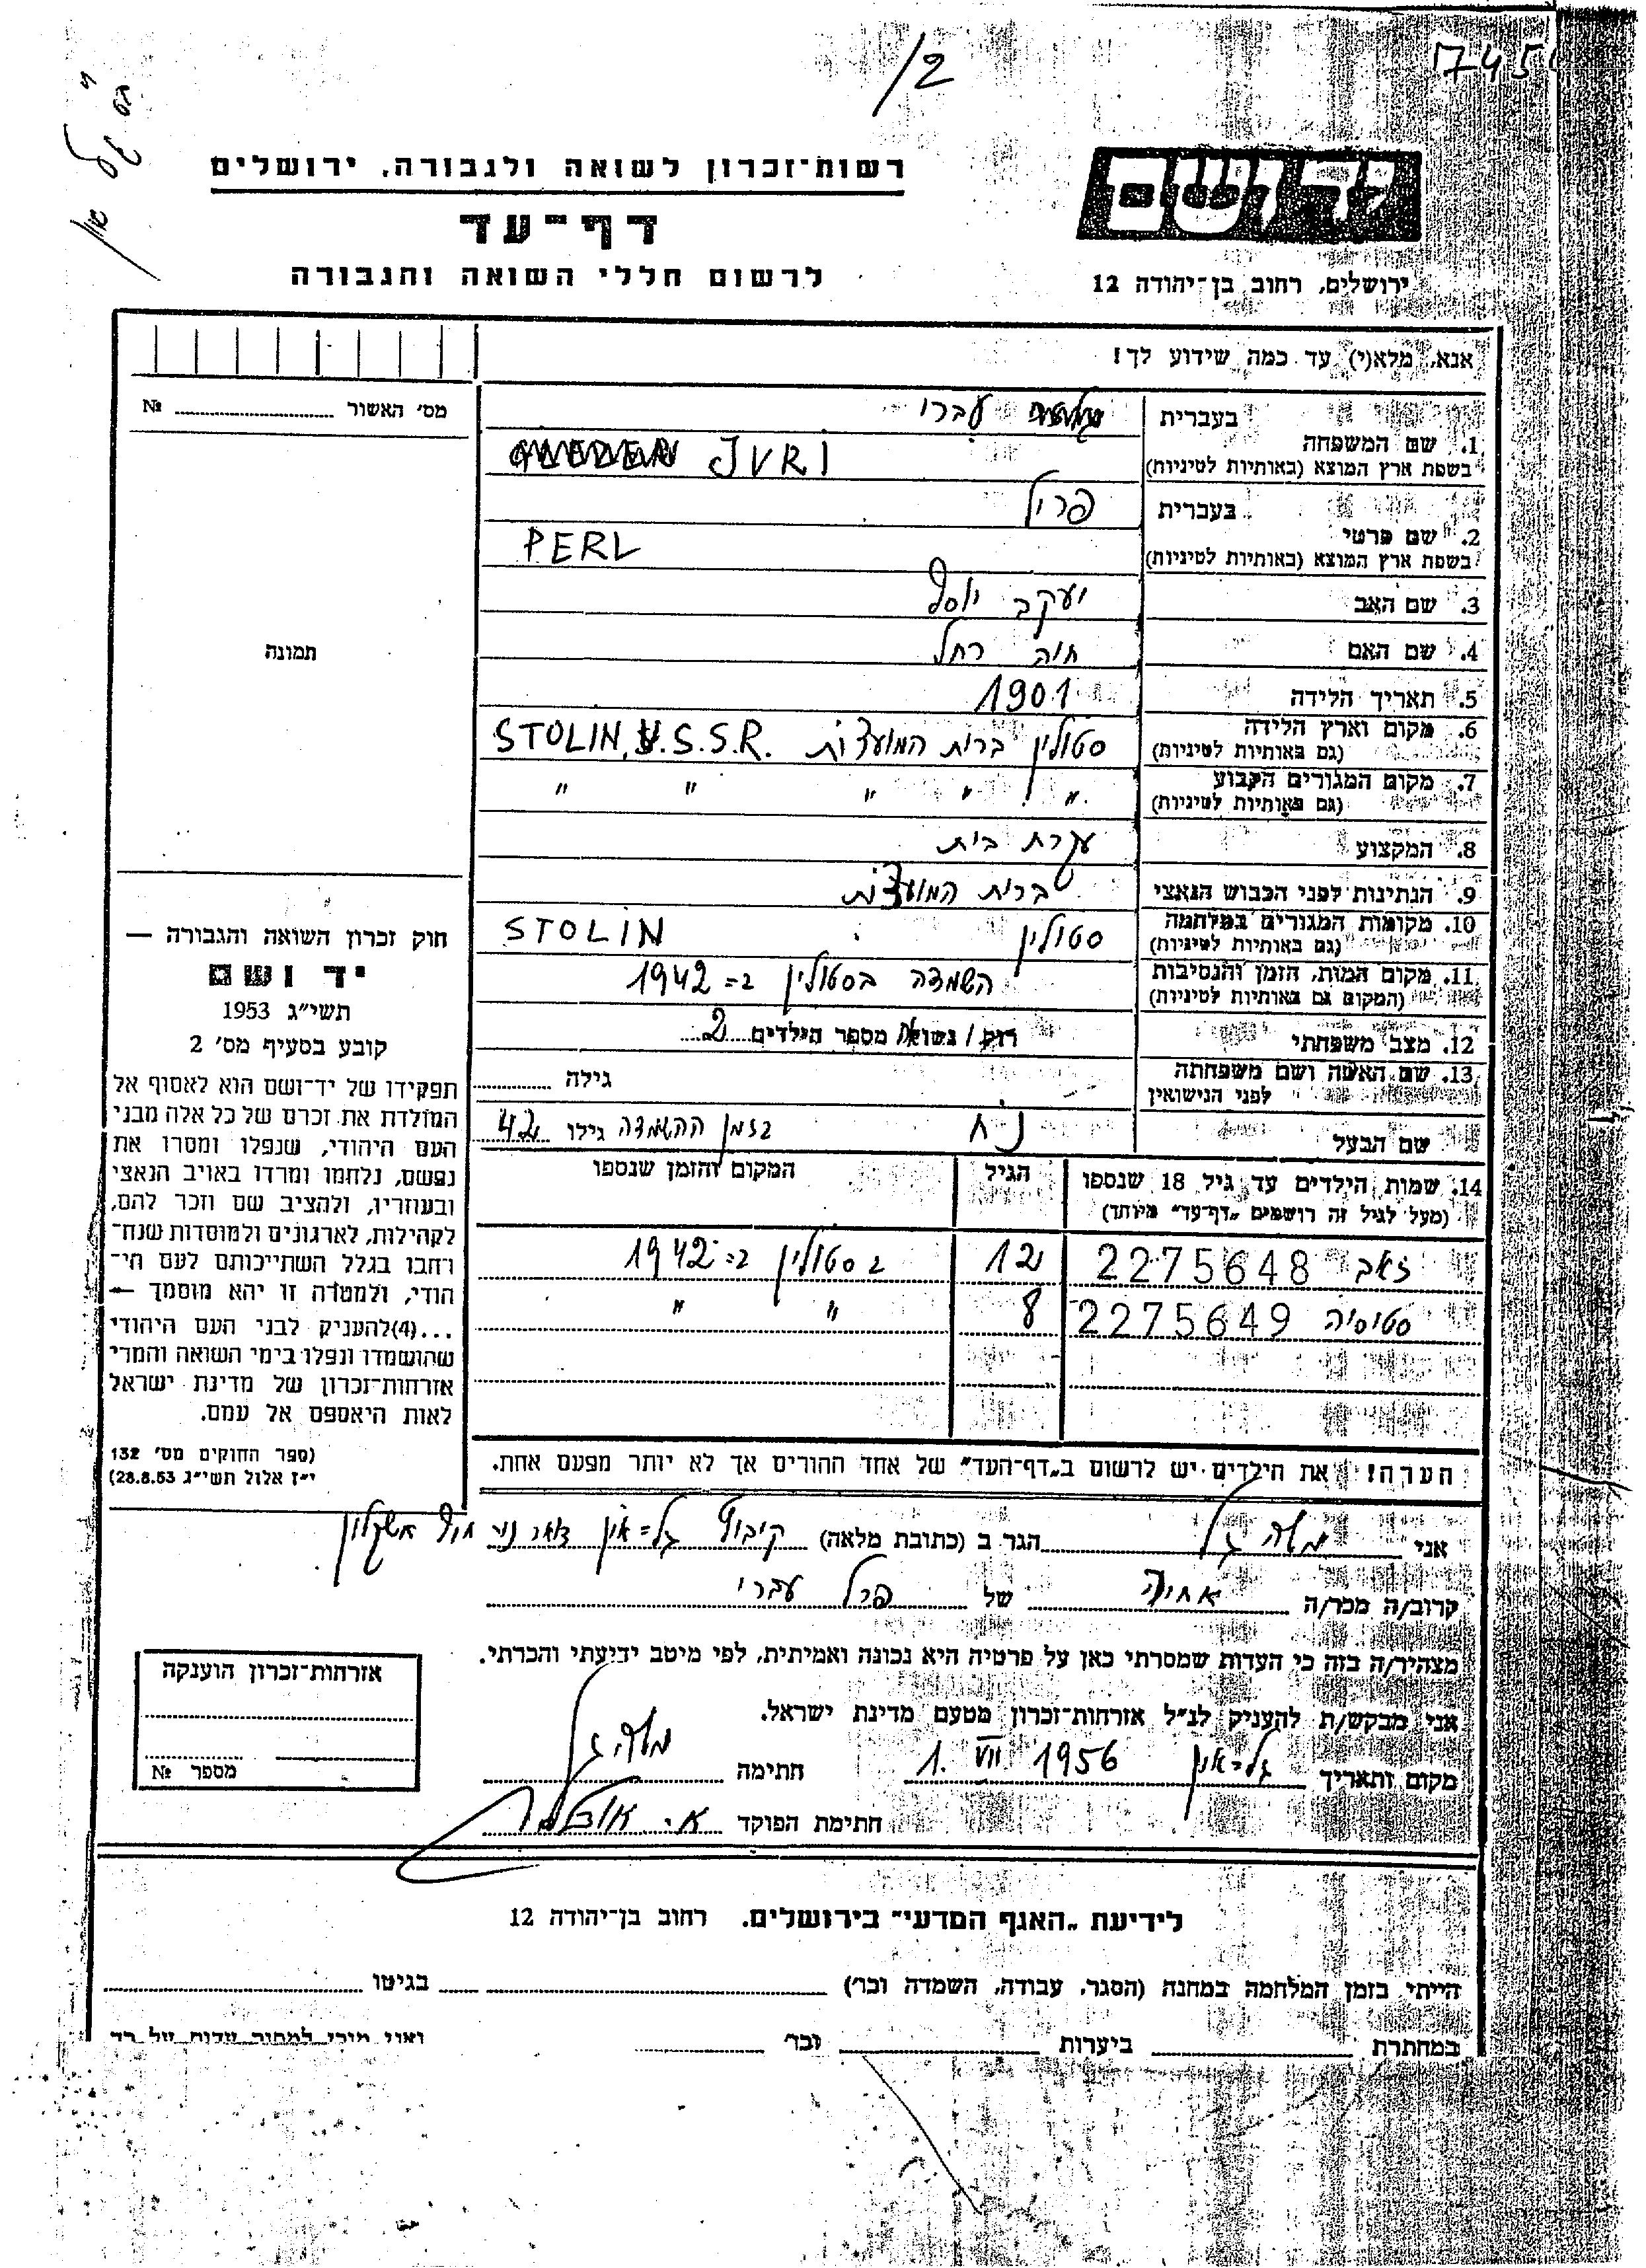 745
/2
רשות־זכרון לשואה ולגבורה, ירושלים
יד ושם
דף־עד
לרשום חללי השואה והגבורה
ירושלים, רחוב בן־יהודה 12
אנא, מלא(י) עד כמה שידוע לך!
מס׳ האשור № 
1. שם המשפחה
בעברית עברי
בשפת ארץ המוצא (באותיות לטיניות) JVRI
2. שם פרטי
בעברית פרל
בשפת ארץ המוצא (באותיות לטיניות) PERL
3. שם האב יעקב יוסף
4. שם האם חוה רחל
תמונה
5. תאריך הלידה 1901
6. מקום וארץ הלידה
(גם באותיות לטיניות) סטולין ברית המועצות STOLIN, U.S.S.R.
7. מקום המגורים הקבוע
(גם באותיות לטיניות) " " " " "
8. המקצוע עקרת בית
9. הנתינות לפני הכבוש הנאצי ברית המועצות
10. מקומות המגורים במלחמה
(גם באותיות לטיניות) סטולין STOLIN
11. מקום המות, הזמן והנסיבות
(המקום גם באותיות לטיניות) השמדה בסטולין ב= 1942
12. מצב משפחתי רוק / נשוא מספר הילדים 2
13. שם האשה ושם משפחתה
לפני הנישואין גילה
שם הבעל נח בזמן ההשמדה גילו 42
14. שמות הילדים עד גיל 18 שנספו הגיל המקום והזמן שנספו
(מעל לגיל זה רושמים „דף־עד״ מיוחד)
זאב 2275648 12 בסטולין ב= 1942
סטיסיה 2275649 8 " " "
הערה! את הילדים יש לרשום ב„דף־העד״ של אחד ההורים אך לא יותר מפעם אחת.
חוק זכרון השואה והגבורה —
יד ושם
תשי״ג 1953
קובע בסעיף מס׳ 2
תפקידו של יד־ושם הוא לאסוף אל
המולדת את זכרם של כל אלה מבני
העם היהודי, שנפלו ומסרו את
נפשם, נלחמו ומרדו באויב הנאצי
ובעוזריו, ולהציב שם וזכר להם,
לקהילות, לארגונים ולמוסדות שנח־
רחבו בגלל השתייכותם לעם הי־
הודי, ולמטרה זו יהא מוסמך —
...(4)להעניק לבני העם היהודי
שהושמדו ונפלו בימי השואה והמרי
אזרחות־זכרון של מדינת ישראל
לאות היאספם אל עמם.
(ספר החוקים מס׳ 132
י״ז אלול תשי״ג 28.8.53)
אני משה גל הגר ב (כתובת מלאה) קיבוץ גל=און דאר נע חוף אשקלון
קרוב/ה מכר/ה אחיה של פרל עברי
מצהיר/ה בזה כי העדות שמסרתי כאן על פרטיה היא נכונה ואמיתית, לפי מיטב ידיעתי והכרתי.
אני מבקש/ת להעניק לנ״ל אזרחות־זכרון מטעם מדינת ישראל.
מקום ותאריך גל=און 1. VII 1956 חתימה משה גל
חתימת הפוקד א.
אזרחות־זכרון הוענקה
מספר №
לידיעת „האגף המדעי״ בירושלים. רחוב בן־יהודה 12
הייתי בזמן המלחמה במחנה (הסגר, עבודה, השמדה וכו׳) בגיטו
במחתרת ביערות וכו׳ ואני מוכן למסור עדות על כך